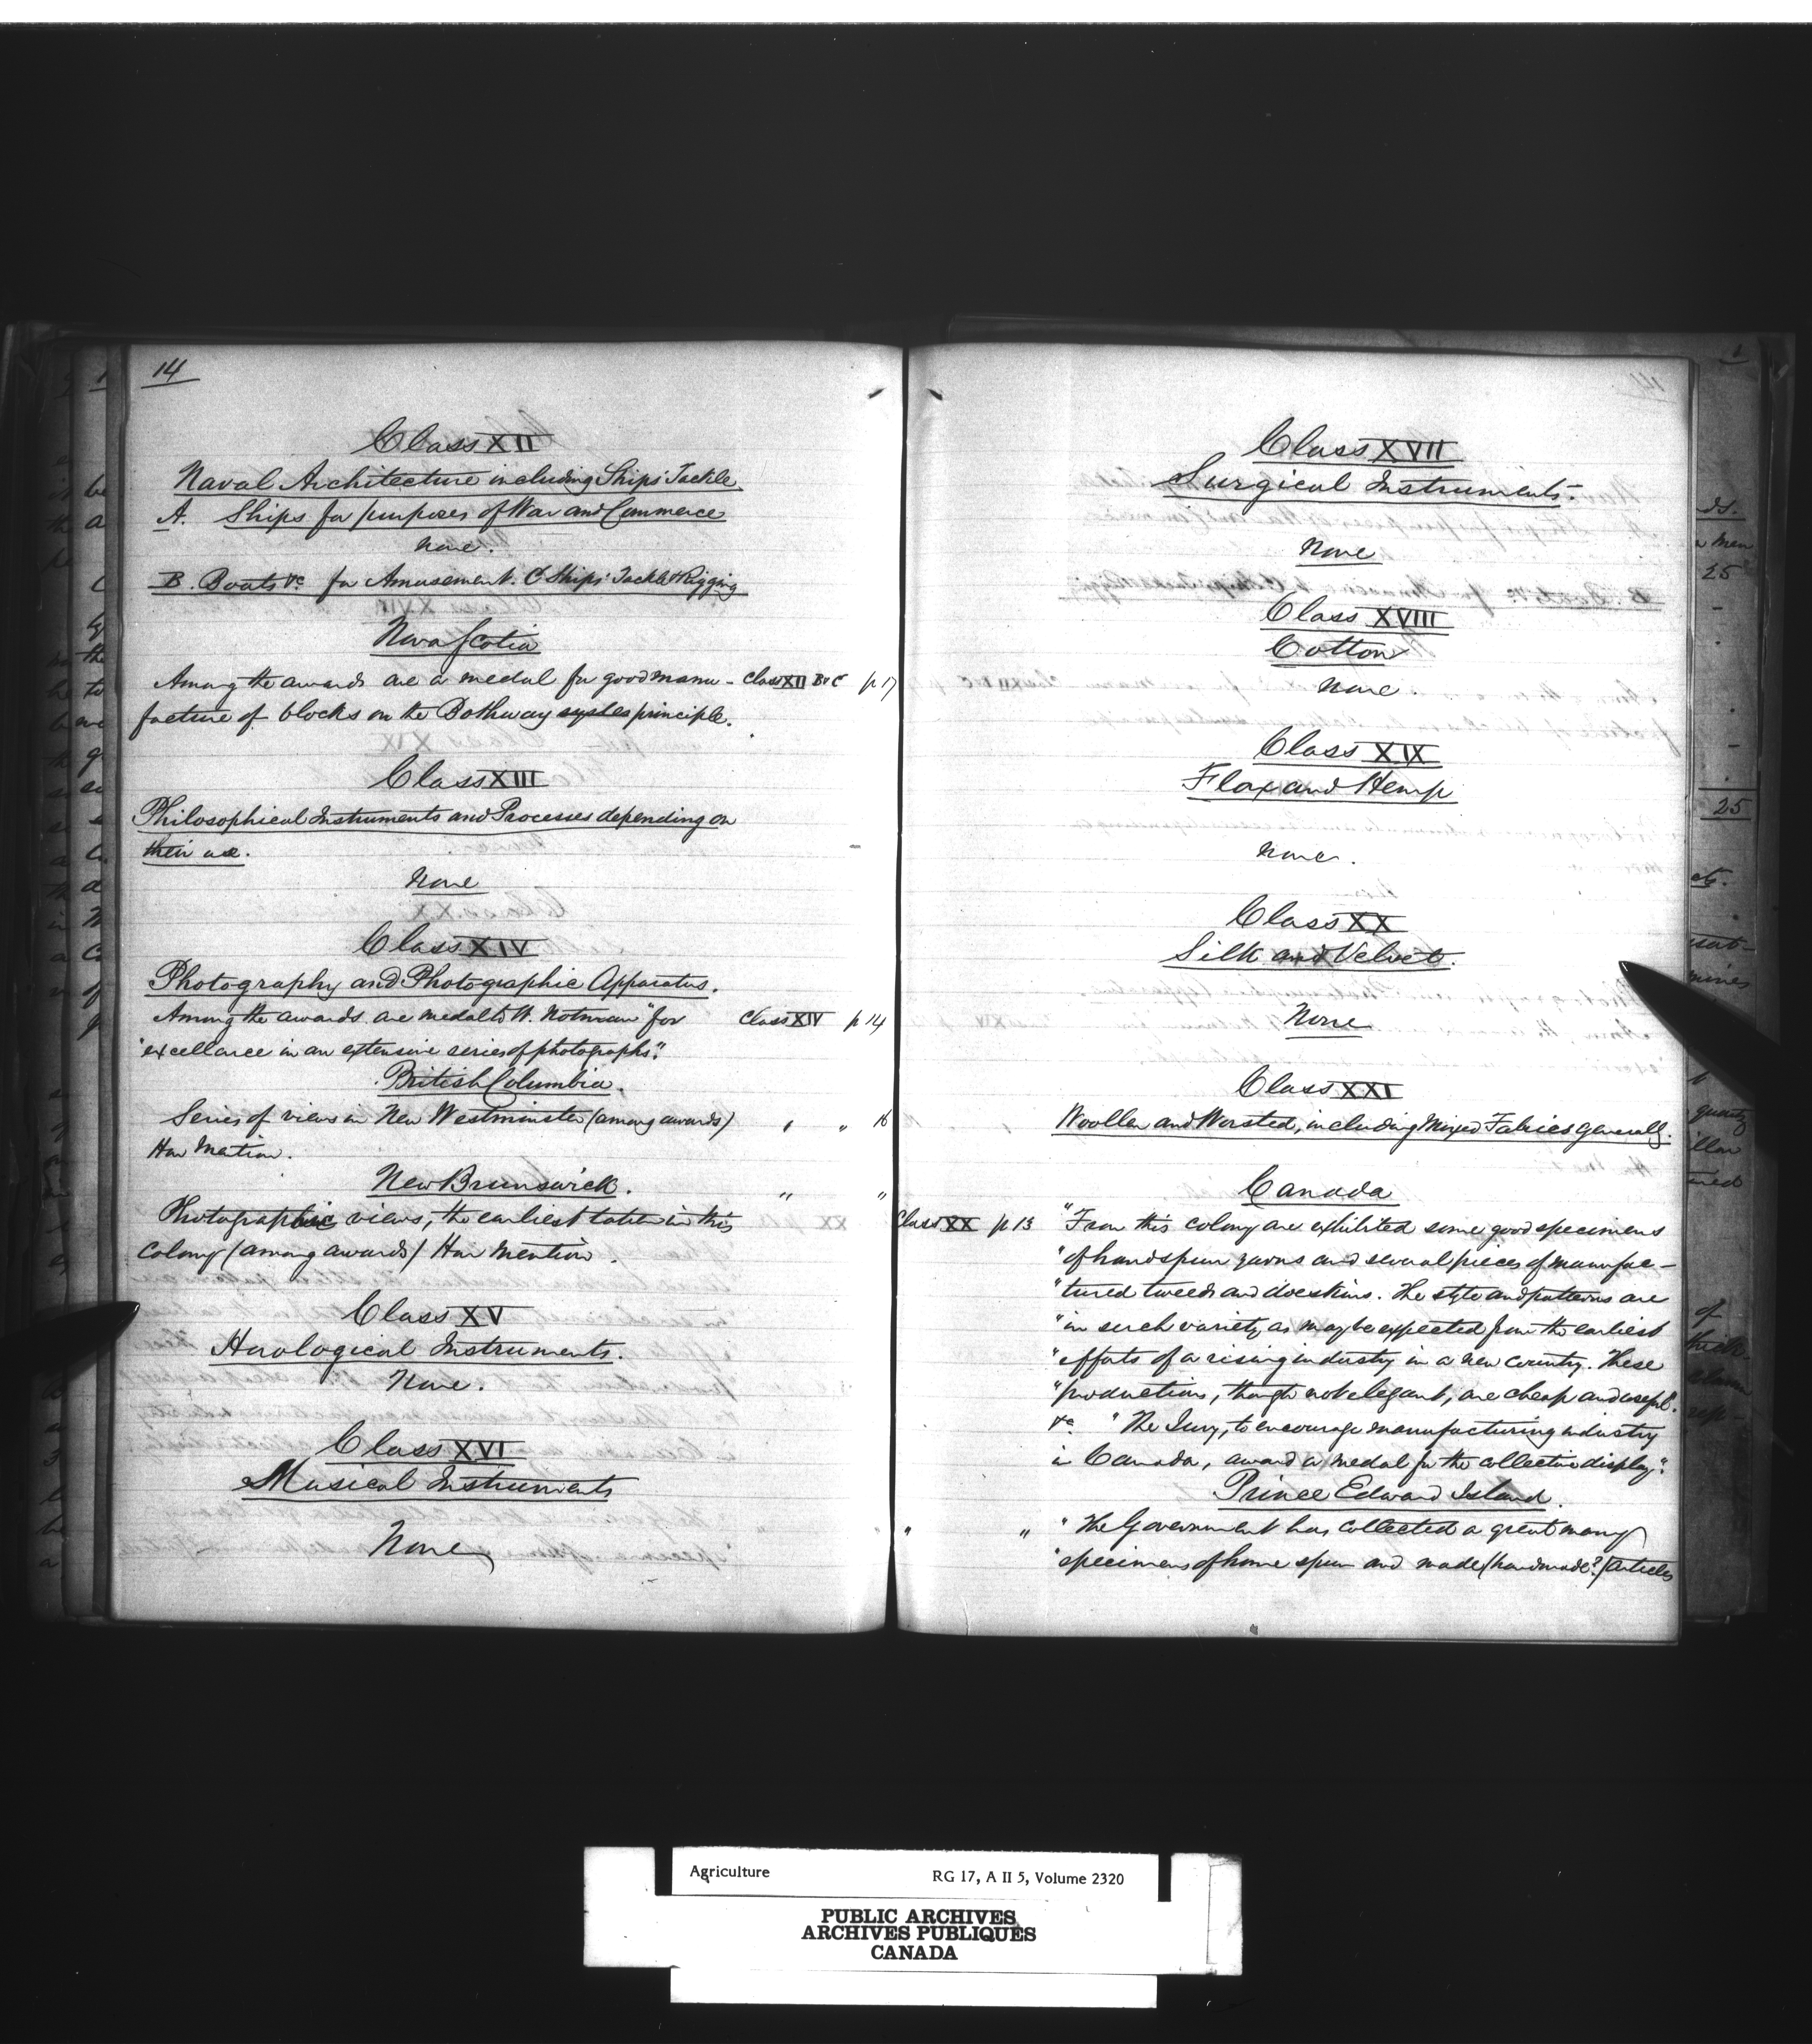 14
Class XII
Naval Architecture including Ships' Tackle
A. Ships for purposes of War and Commerce
None.
B. Boats &c for Amusement. C Ships' Tackle & Rigging
Nova Scotia
Among the awards are a medal for good manu- Class XII B&C p 17
facture of blocks on the Bothway principle.
Class XIII
Philosophical Instruments and Processes depending on
their use.
None
Class XIV
Photography and Photographic Apparatus.
Among the awards are medal to W. Notman "for Class XIV p 14
"excellence in an extensive series of photographs".
British Columbia.
Series of views in New Westminster (among awards) " " 16
Hon Mention.
New Brunswick. " "
Photographic views, the earliest taken in this
Colony (among awards) Hon Mention.
Class XV
Horological Instruments.
None.
Class XVI
Musical Instruments
None
Class XVII
Surgical Instruments.
None
Class XVIII
Cotton
None.
Class XIX
Flax and Hemp
None.
Class XX
Silk and Velvet.
None
Class XXI
Woollen and Worsted, including Mixed Fabrics generally.
Canada
Class XX p 13 "From this colony are exhibited some good specimens
"of handspun yarns and several pieces of manufac-
"tured tweeds and doeskins. The style and patterns are
"in such variety as may be expected from the earliest
"efforts of a rising industry in a new country. These
"productions, though not elegant, are cheap and useful.
&c "The Jury, to encourage manufacturing industry
in Canada, award a medal for the collective display".
Prince Edward Island.
" " "The Government has collected a great many
"specimens of home spun and made (handmade?) articles
Agriculture RG 17, A II 5, Volume 2320
PUBLIC ARCHIVES
ARCHIVES PUBLIQUES
CANADA